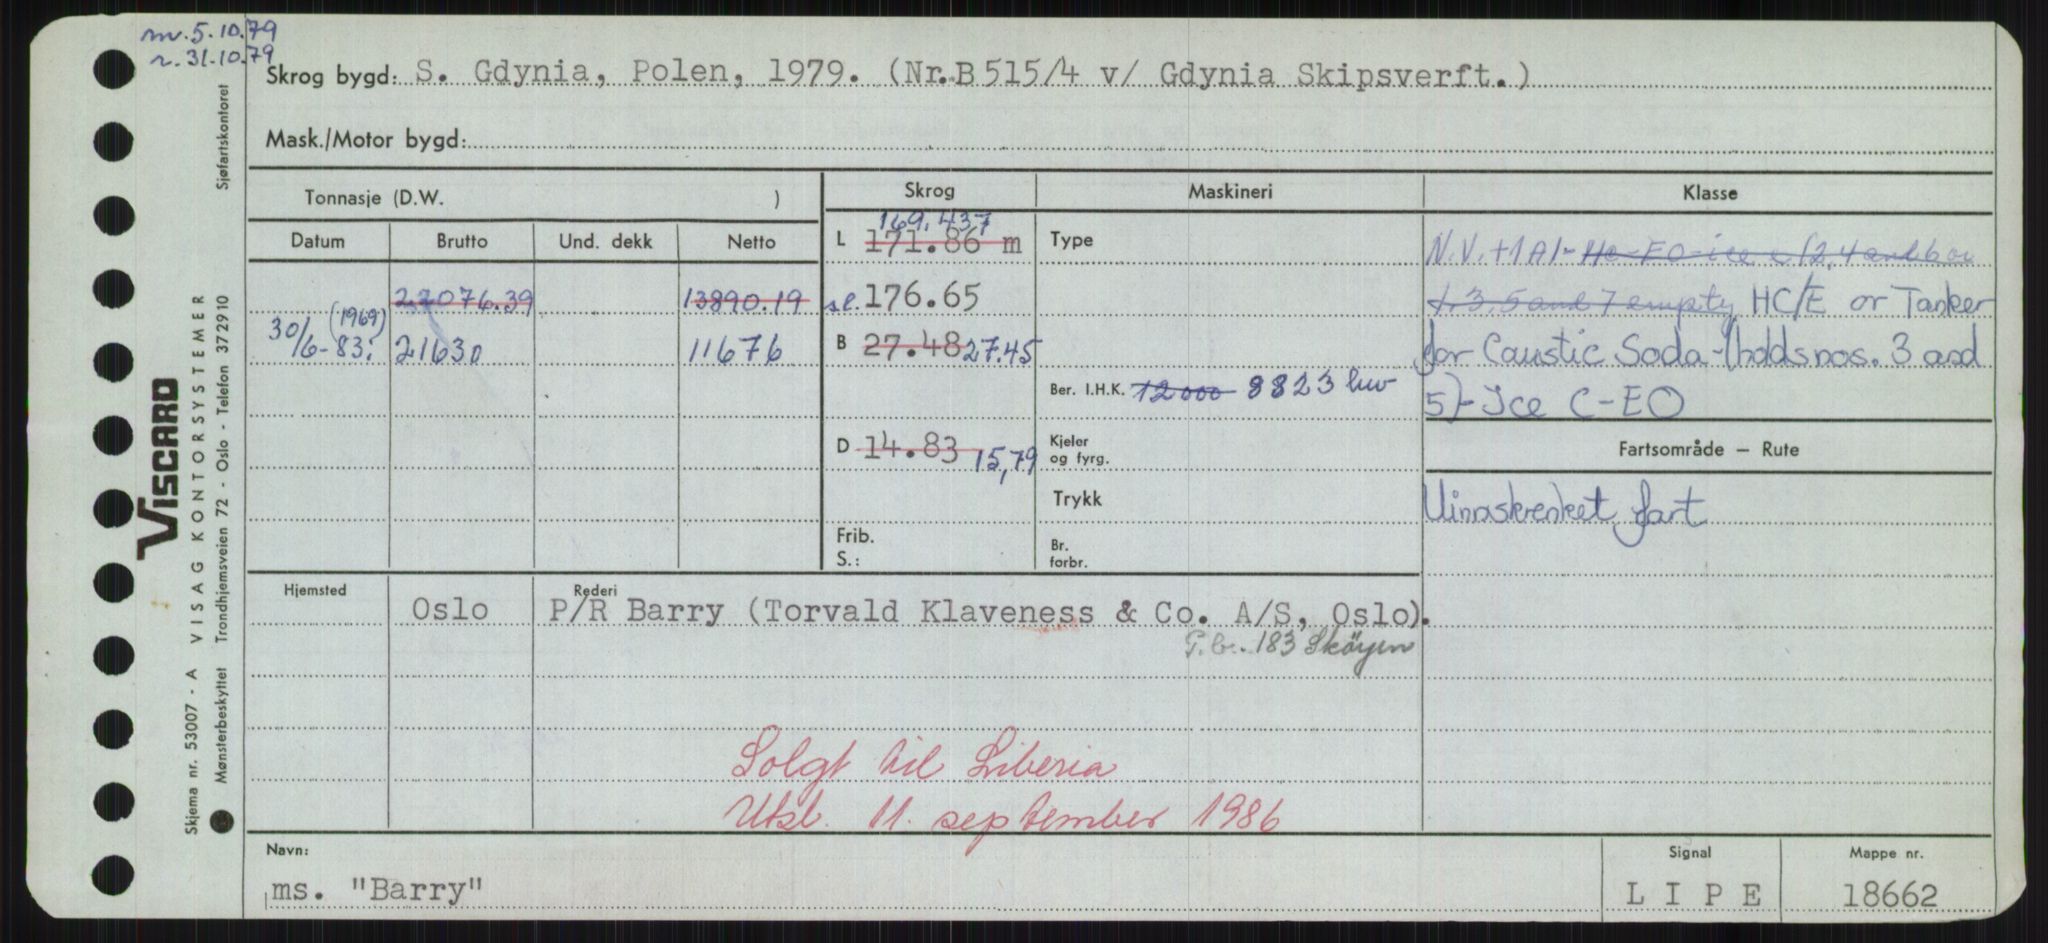 m. 5.10.79
r. 31.10.79
Skrog bygd: S. Gdynia, Polen, 1979. (Nr. B 515/4 v/ Gdynia Skipsverft.)
Mask./Motor bygd:
Tonnasje (D.W. )
Skrog Maskineri Klasse
Datum Brutto Und. dekk Netto
169.437
L 171.86 m Type
N.V. +1A1- HC-EO-ice C (2,4 and 6 or
22076.39 13890.19 sl. 176.65
1, 3, 5 and 7 empty HC/E or Tanker
30/6-83: (1969) 21630 11676
B 27.48 27.45
for Caustic Soda-(holds nos. 3 and
Ber. I.H.K. 12000 8823 hw
5)-Ice C-EO
D 14.83 15,79
Kjeler og fyrg.
Fartsområde — Rute
Trykk
Uinnskrenket fart
Frib.
S.:
Br. forbr.
Hjemsted Rederi
Oslo P/R Barry (Torvald Klaveness & Co. A/S, Oslo).
P.b. 183 Skøyen
Solgt til Liberia
Utsl. 11. september 1986
Navn: Signal Mappe nr.
ms. "Barry" L I P E 18662
VISCARD
VISAG KONTORSYSTEMER
Skjema nr. 53007 - A
Mønsterbeskyttet Trondhjemsveien 72 - Oslo - Telefon 37 29 10 Sjøfartskontoret